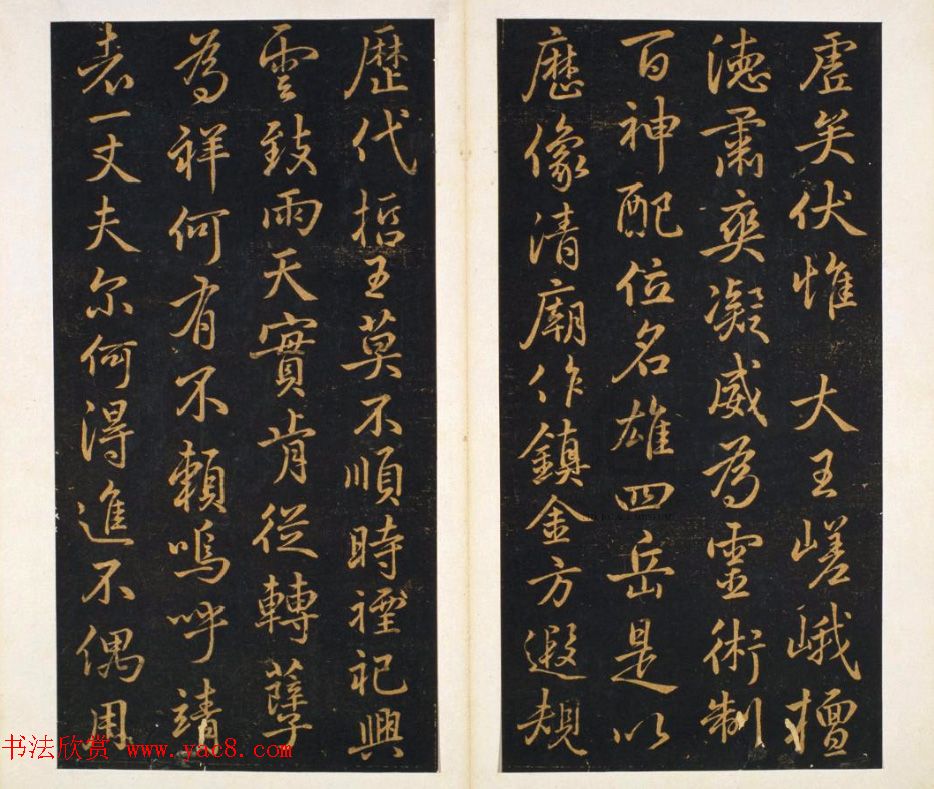 虛矣伏惟 大王嵯峨擅
德肅爽凝威為靈術制
百神配位名雄四岳是以
歷像清廟作鎮金方遐規
歷代哲王莫不順時禋祀興
雲致雨天實肯從轉孽
為祥何有不賴嗚呼靖
表一丈夫尔何得進不偶用
书法欣赏 www.yac8.com